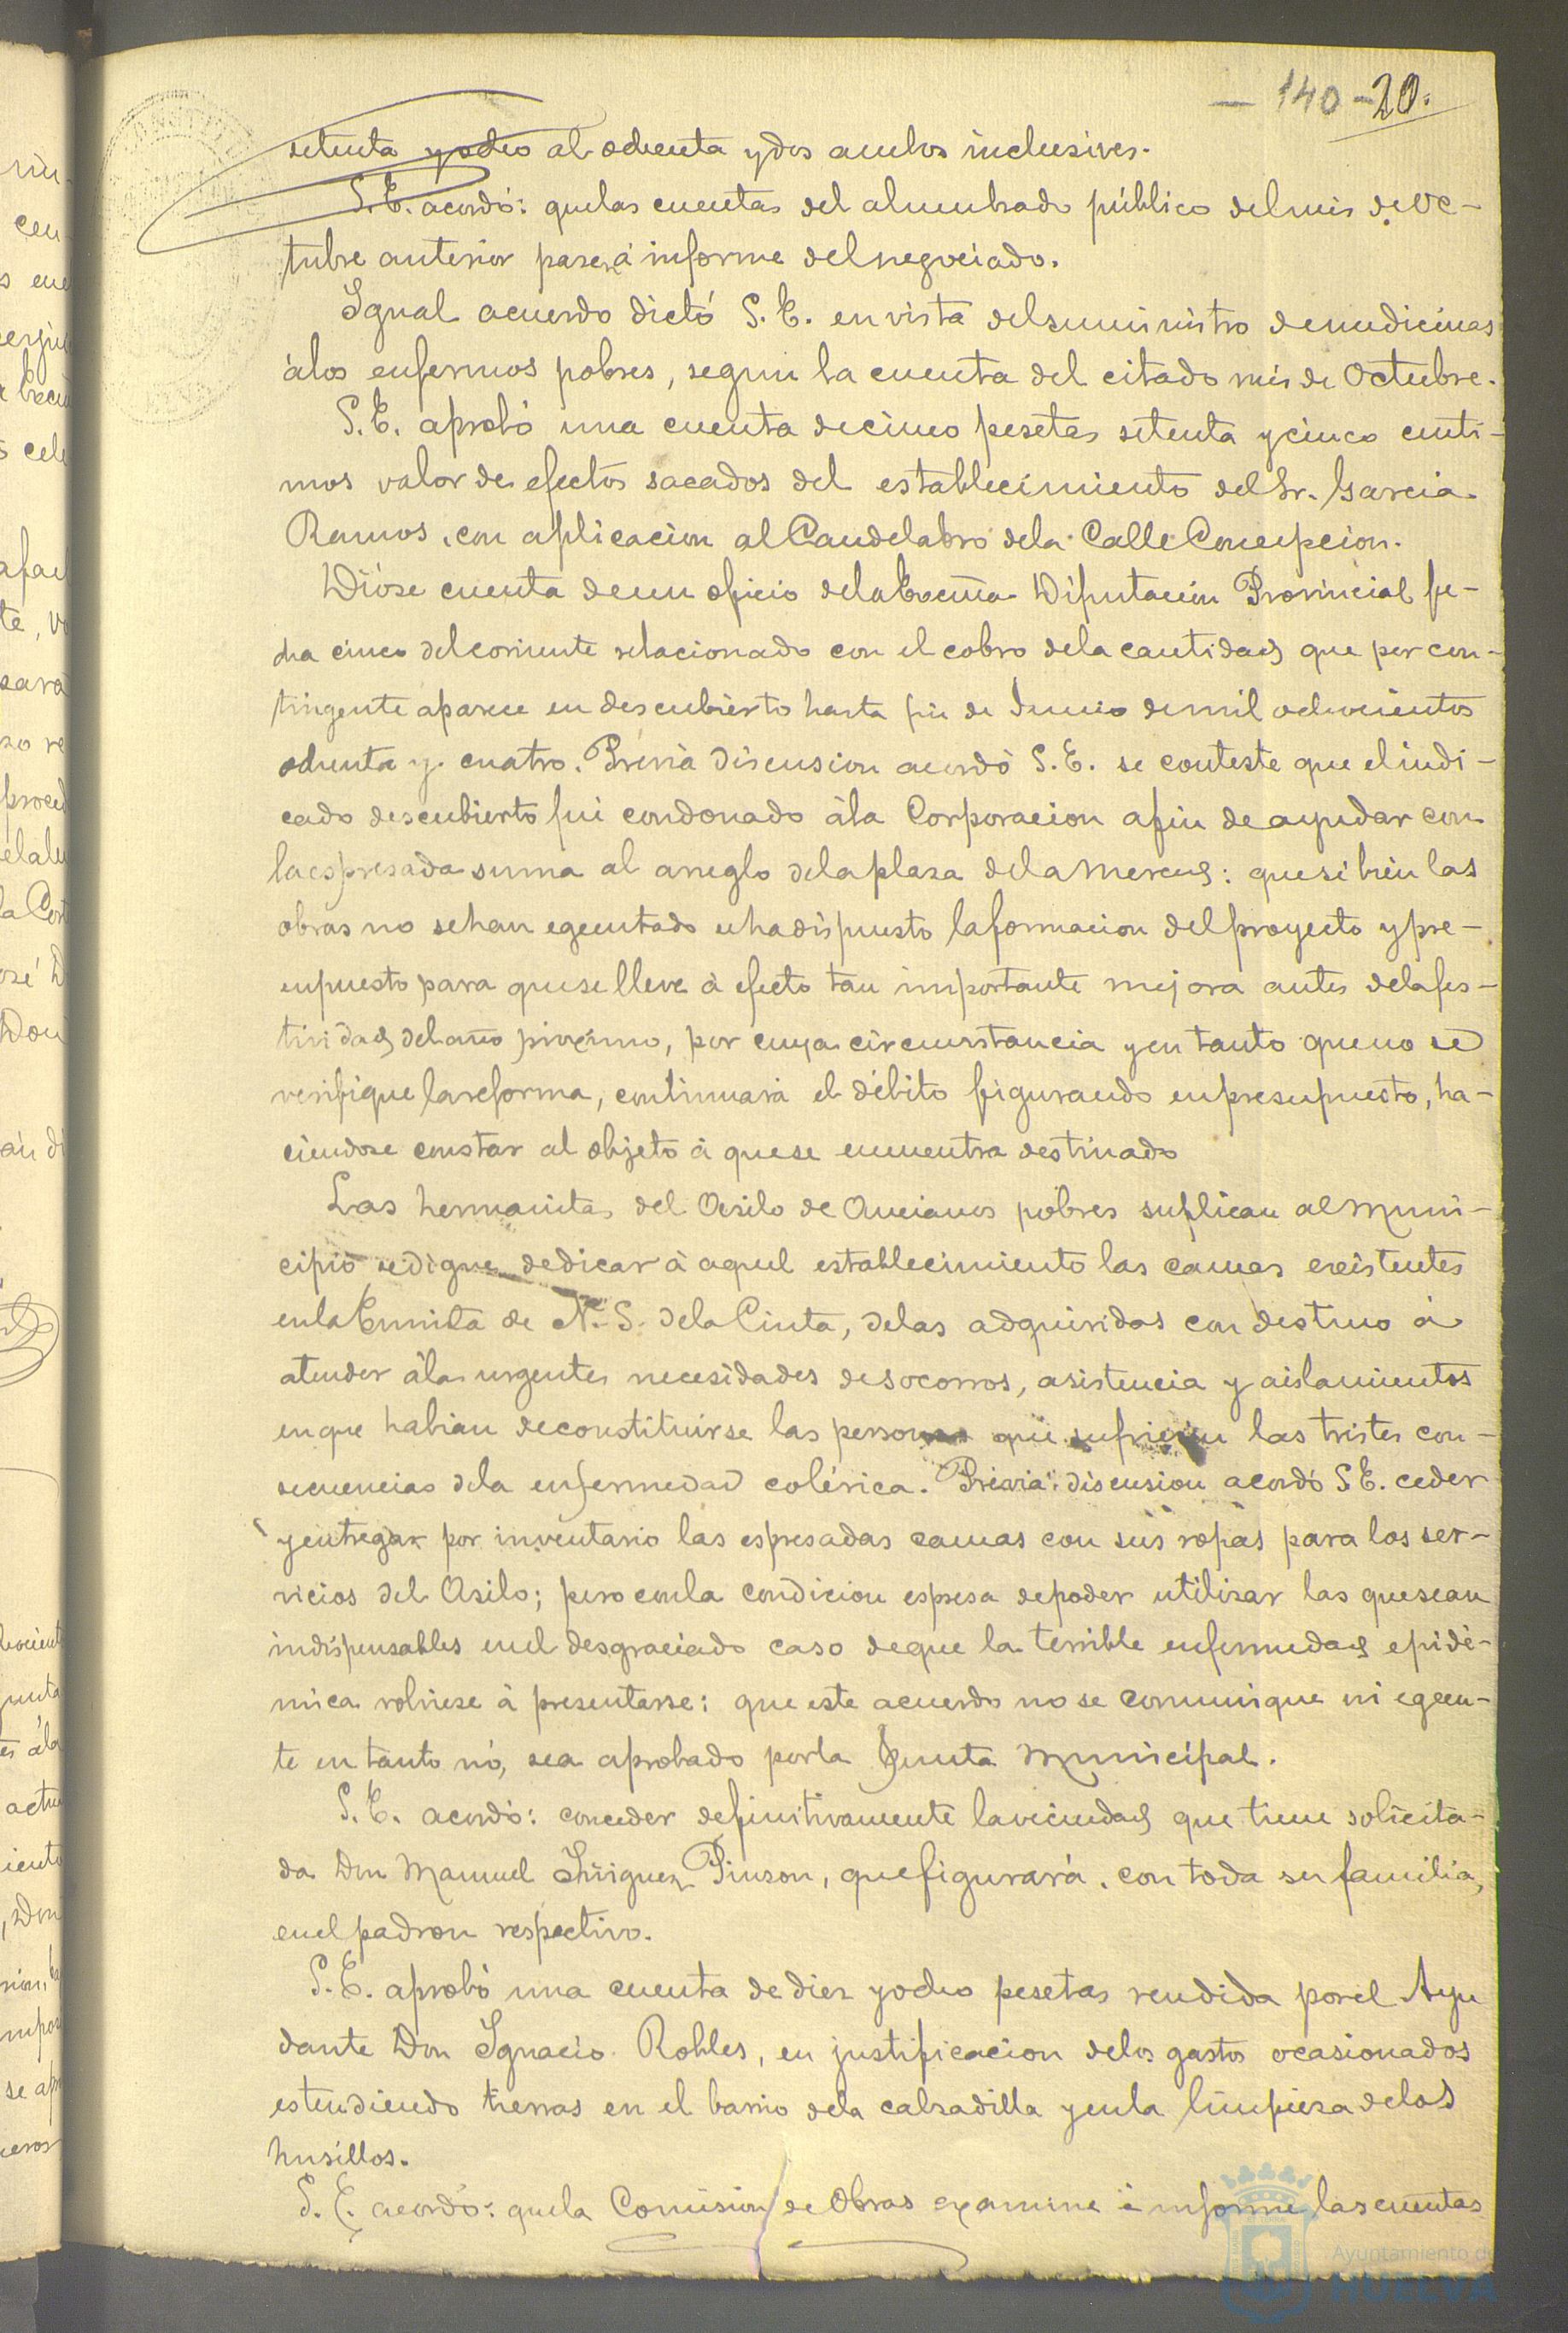 — 140 - 20.
setenta y ocho al ochenta y dos ambos inclusives.
S.E. acordó: que las cuentas del alumbrado público del mes de Oc-
tubre anterior pasen á informe del negociado.
Igual acuerdo dictó S.E. en vista del suministro de medicinas
á los enfermos pobres, segun la cuenta del citado mes de Octubre.
S.E. aprobó una cuenta de cinco pesetas setenta y cinco centi-
mos valor de efectos sacados del establecimiento del Sr. Garcia
Ramos, con aplicacion al Candelabro de la Calle Concepcion.
Dióse cuenta de un oficio de la Excma Diputación Provincial fe-
cha cinco del corriente relacionado con el cobro de la cantidad que por con-
tingente aparece en descubierto hasta fin de Junio de mil ochocientos
ochenta y cuatro. Previa discusion acordó S.E. se conteste que el indi-
cado descubierto fué condonado á la Corporacion a fin de ayudar con
la espresada suma al arreglo de la plaza de la Merced: que si bien las
obras no se han egecutado se ha dispuesto la formacion del proyecto y pre-
supuesto para que se lleve á efecto tan importante mejora antes de la fes-
tividad del año próximo, por cuya circunstancia y en tanto que no se
verifique la reforma, continuará el débito figurando en presupuesto, ha-
ciendose constar al objeto á que se encuentra destinado
Las hermanitas del Asilo de Ancianos pobres suplican al Muni-
cipio se digne dedicar á aquel establecimiento las camas existentes
en la Ermita de N. S. de la Cinta, de las adquiridas con destino á
atender á las urgentes necesidades de socorros, asistencia y aislamientos
en que habian de constituirse las personas que sufrieran las tristes con-
secuencias de la enfermedad colérica. Previa discusion acordó S E. ceder
y entregar por inventario las espresadas camas con sus ropas para los ser-
vicios del Asilo; pero con la condicion espresa de poder utilizar las que sean
indispensables en el desgraciado caso de que la terrible enfermedad epidé-
mica volviese á presentarse: que este acuerdo no se comunique ni egecu-
te en tanto nó, sea aprobado por la Junta Municipal.
S.E. acordó: conceder definitivamente la vecindad que tiene solicita-
da Don Manuel Iñiguez Pinzon, que figurará, con toda su familia,
en el padron respectivo.
S.E. aprobó una cuenta de diez y ocho pesetas rendida por el Ayu
dante Don Ignacio Robles, en justificacion de los gastos ocasionados
estendiendo tierras en el barrio de la calzadilla y en la limpieza de los
husillos.
S.E. acordó: que la Comision de Obras examine é informe las cuentas
Ayuntamiento de
HUELVA